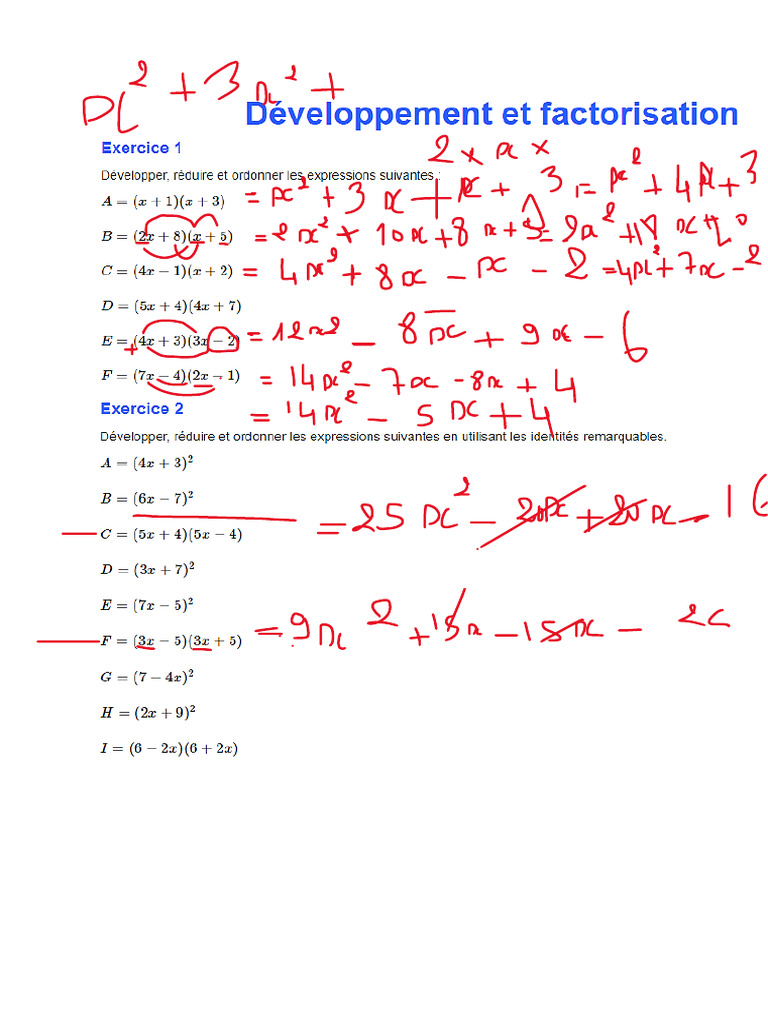 x² + 3x² +
Développement et factorisation
Exercice 1
2 × x ×
Développer, réduire et ordonner les expressions suivantes :
A = (x + 1)(x + 3) = x² + 3x + x + 3 = x² + 4x + 3
B = (2x + 8)(x + 5) = 2x² + 10x + 8x +
C = (4x − 1)(x + 2) = 4x² + 8x − x − 2 = 4x² + 7x − 2
D = (5x + 4)(4x + 7)
E = (4x + 3)(3x − 2) = 12x² − 8x + 9x − 6
+
F = (7x − 4)(2x − 1) = 14x² − 7x − 8x + 4
= 14x² − 5x + 4
Exercice 2
Développer, réduire et ordonner les expressions suivantes en utilisant les identités remarquables.
A = (4x + 3)²
B = (6x − 7)²
C = (5x + 4)(5x − 4) = 25x² − 20x + 20x − 16
D = (3x + 7)²
E = (7x − 5)²
F = (3x − 5)(3x + 5) = 9x² + 15x − 15x −
G = (7 − 4x)²
H = (2x + 9)²
I = (6 − 2x)(6 + 2x)